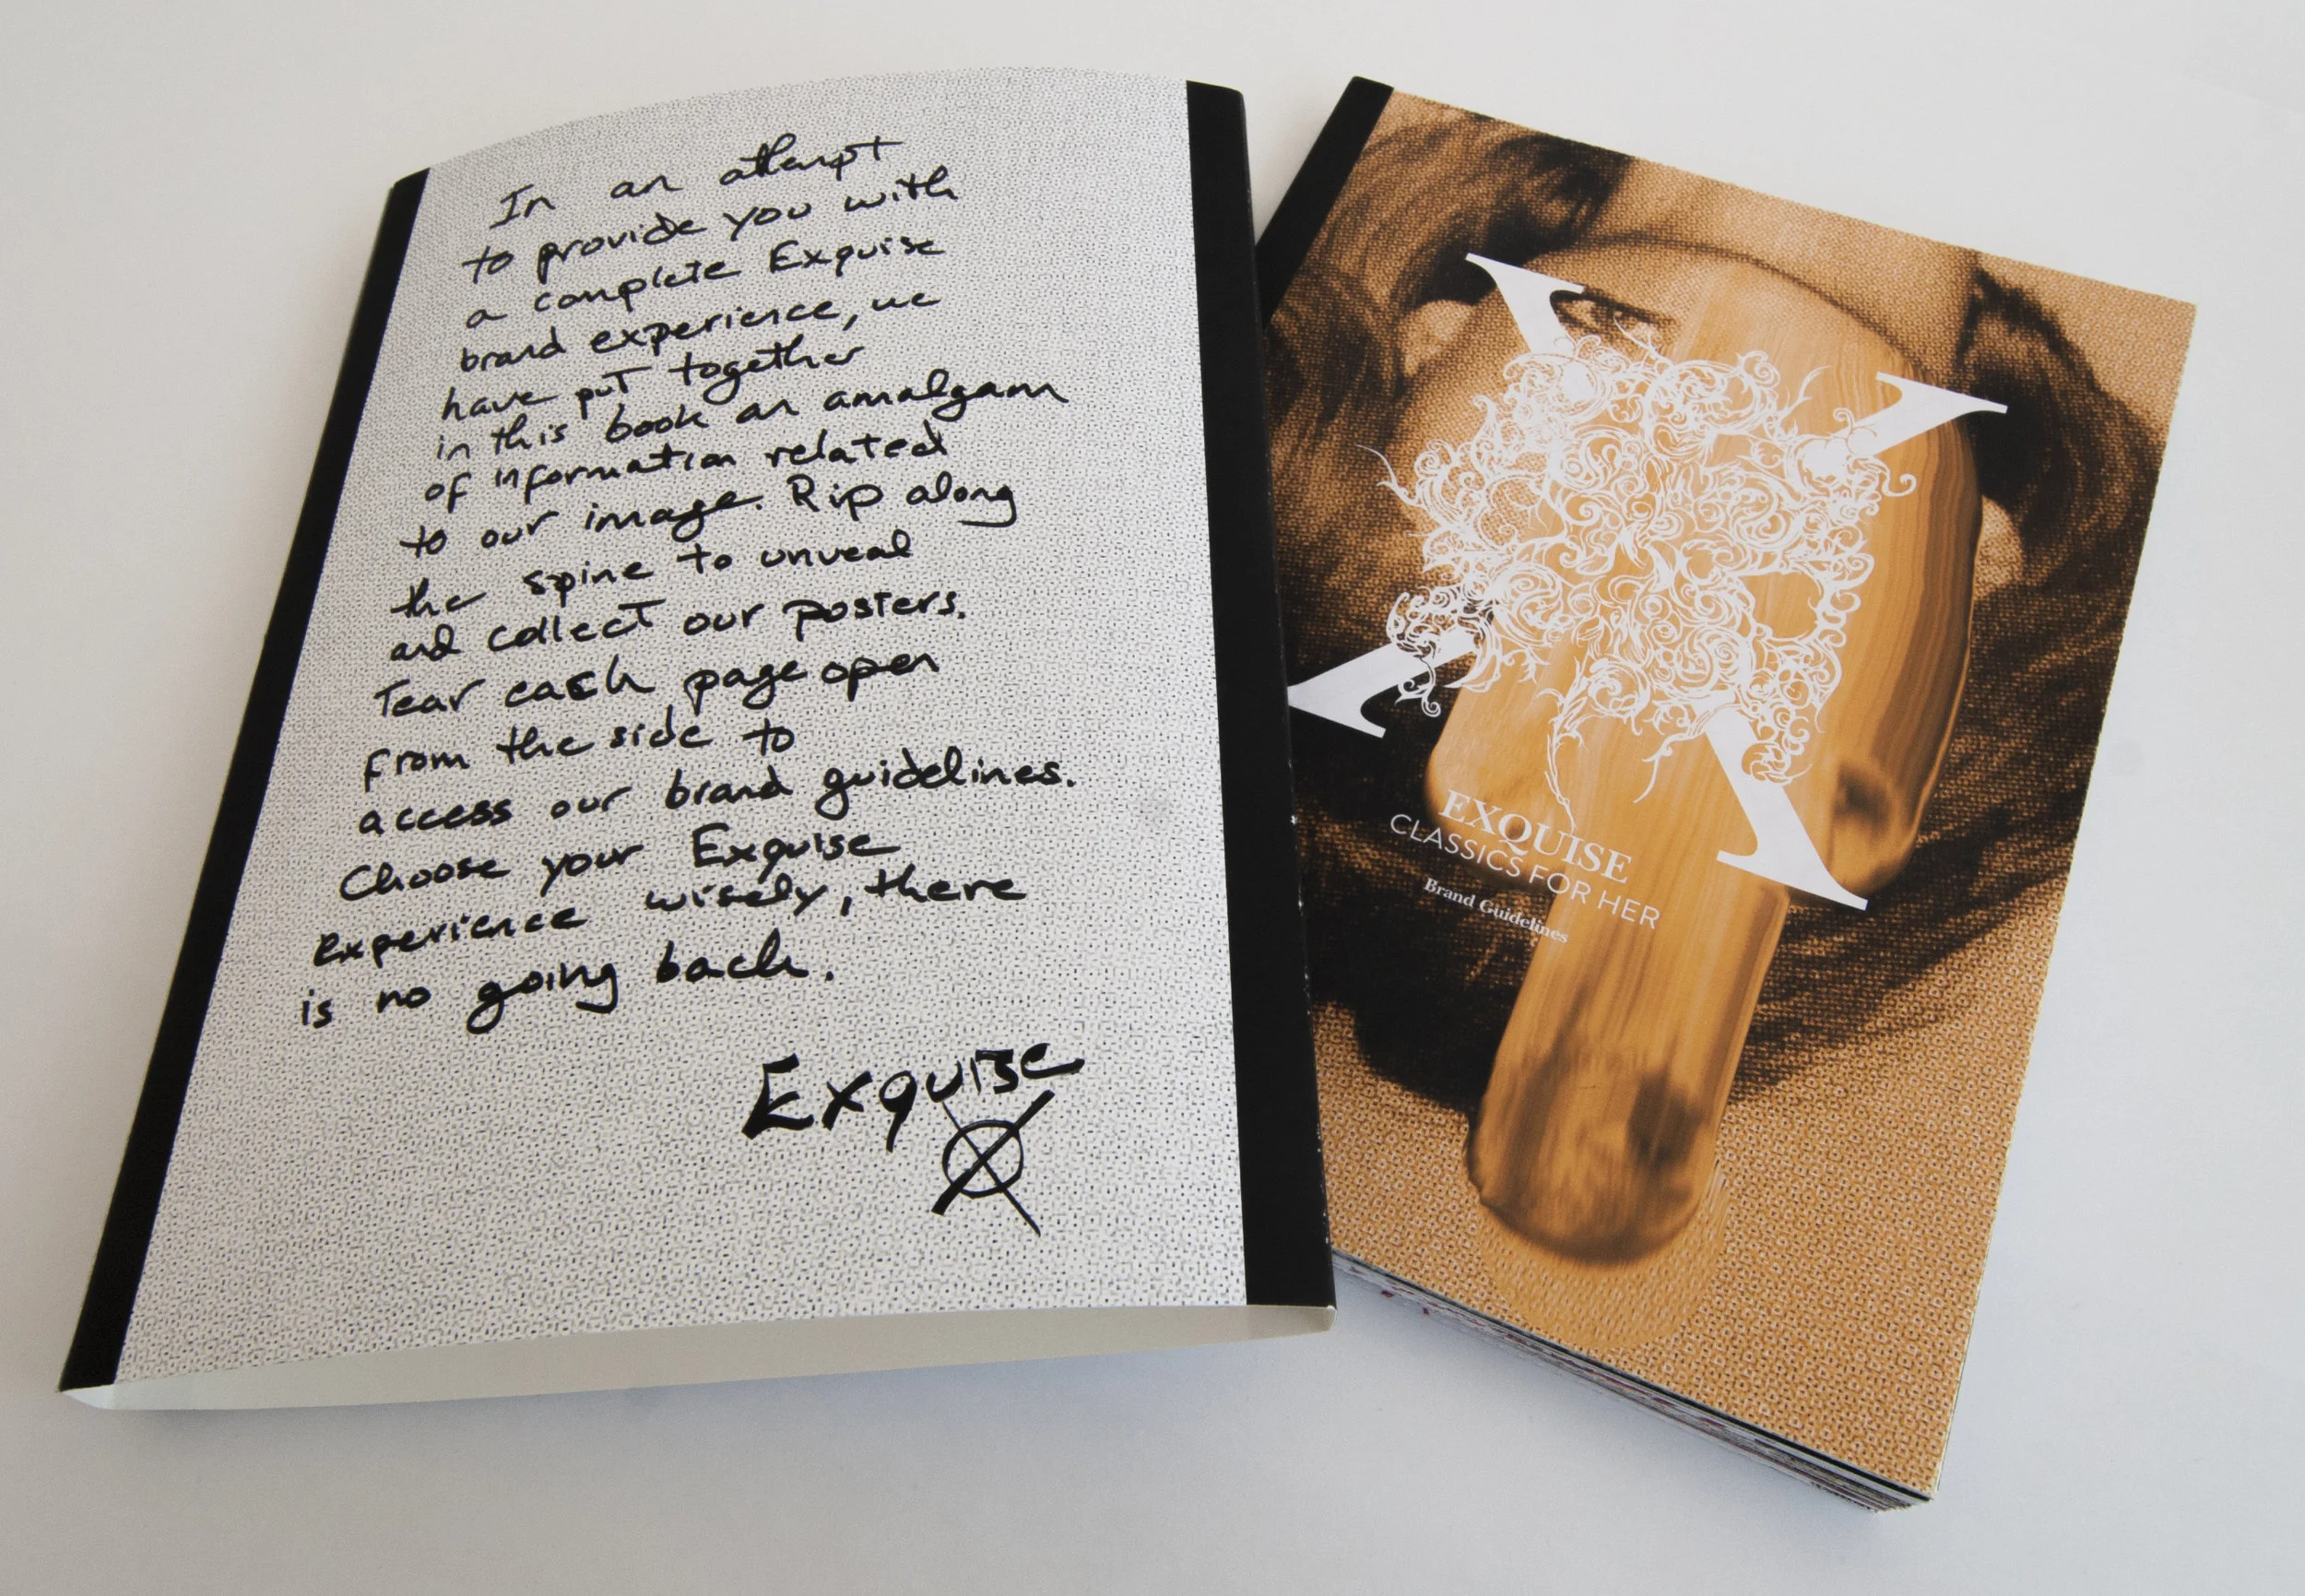 In an attempt
to provide you with
a complete Exquise
brand experience, we
have put together
in this book an amalgam
of information related
to our image. Rip along
the spine to unveal
and collect our posters.
Tear each page open
from the side to
access our brand guidelines.
Choose your Exquise
experience wisely, there
is no going back.
Exquise
X
EXQUISE
CLASSICS FOR HER
Brand Guidelines